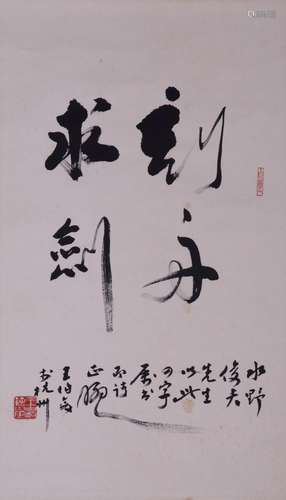 刻舟
求劍
水野
俊夫
先生
以此
四字
属書
正腕
王伯敏
於杭州